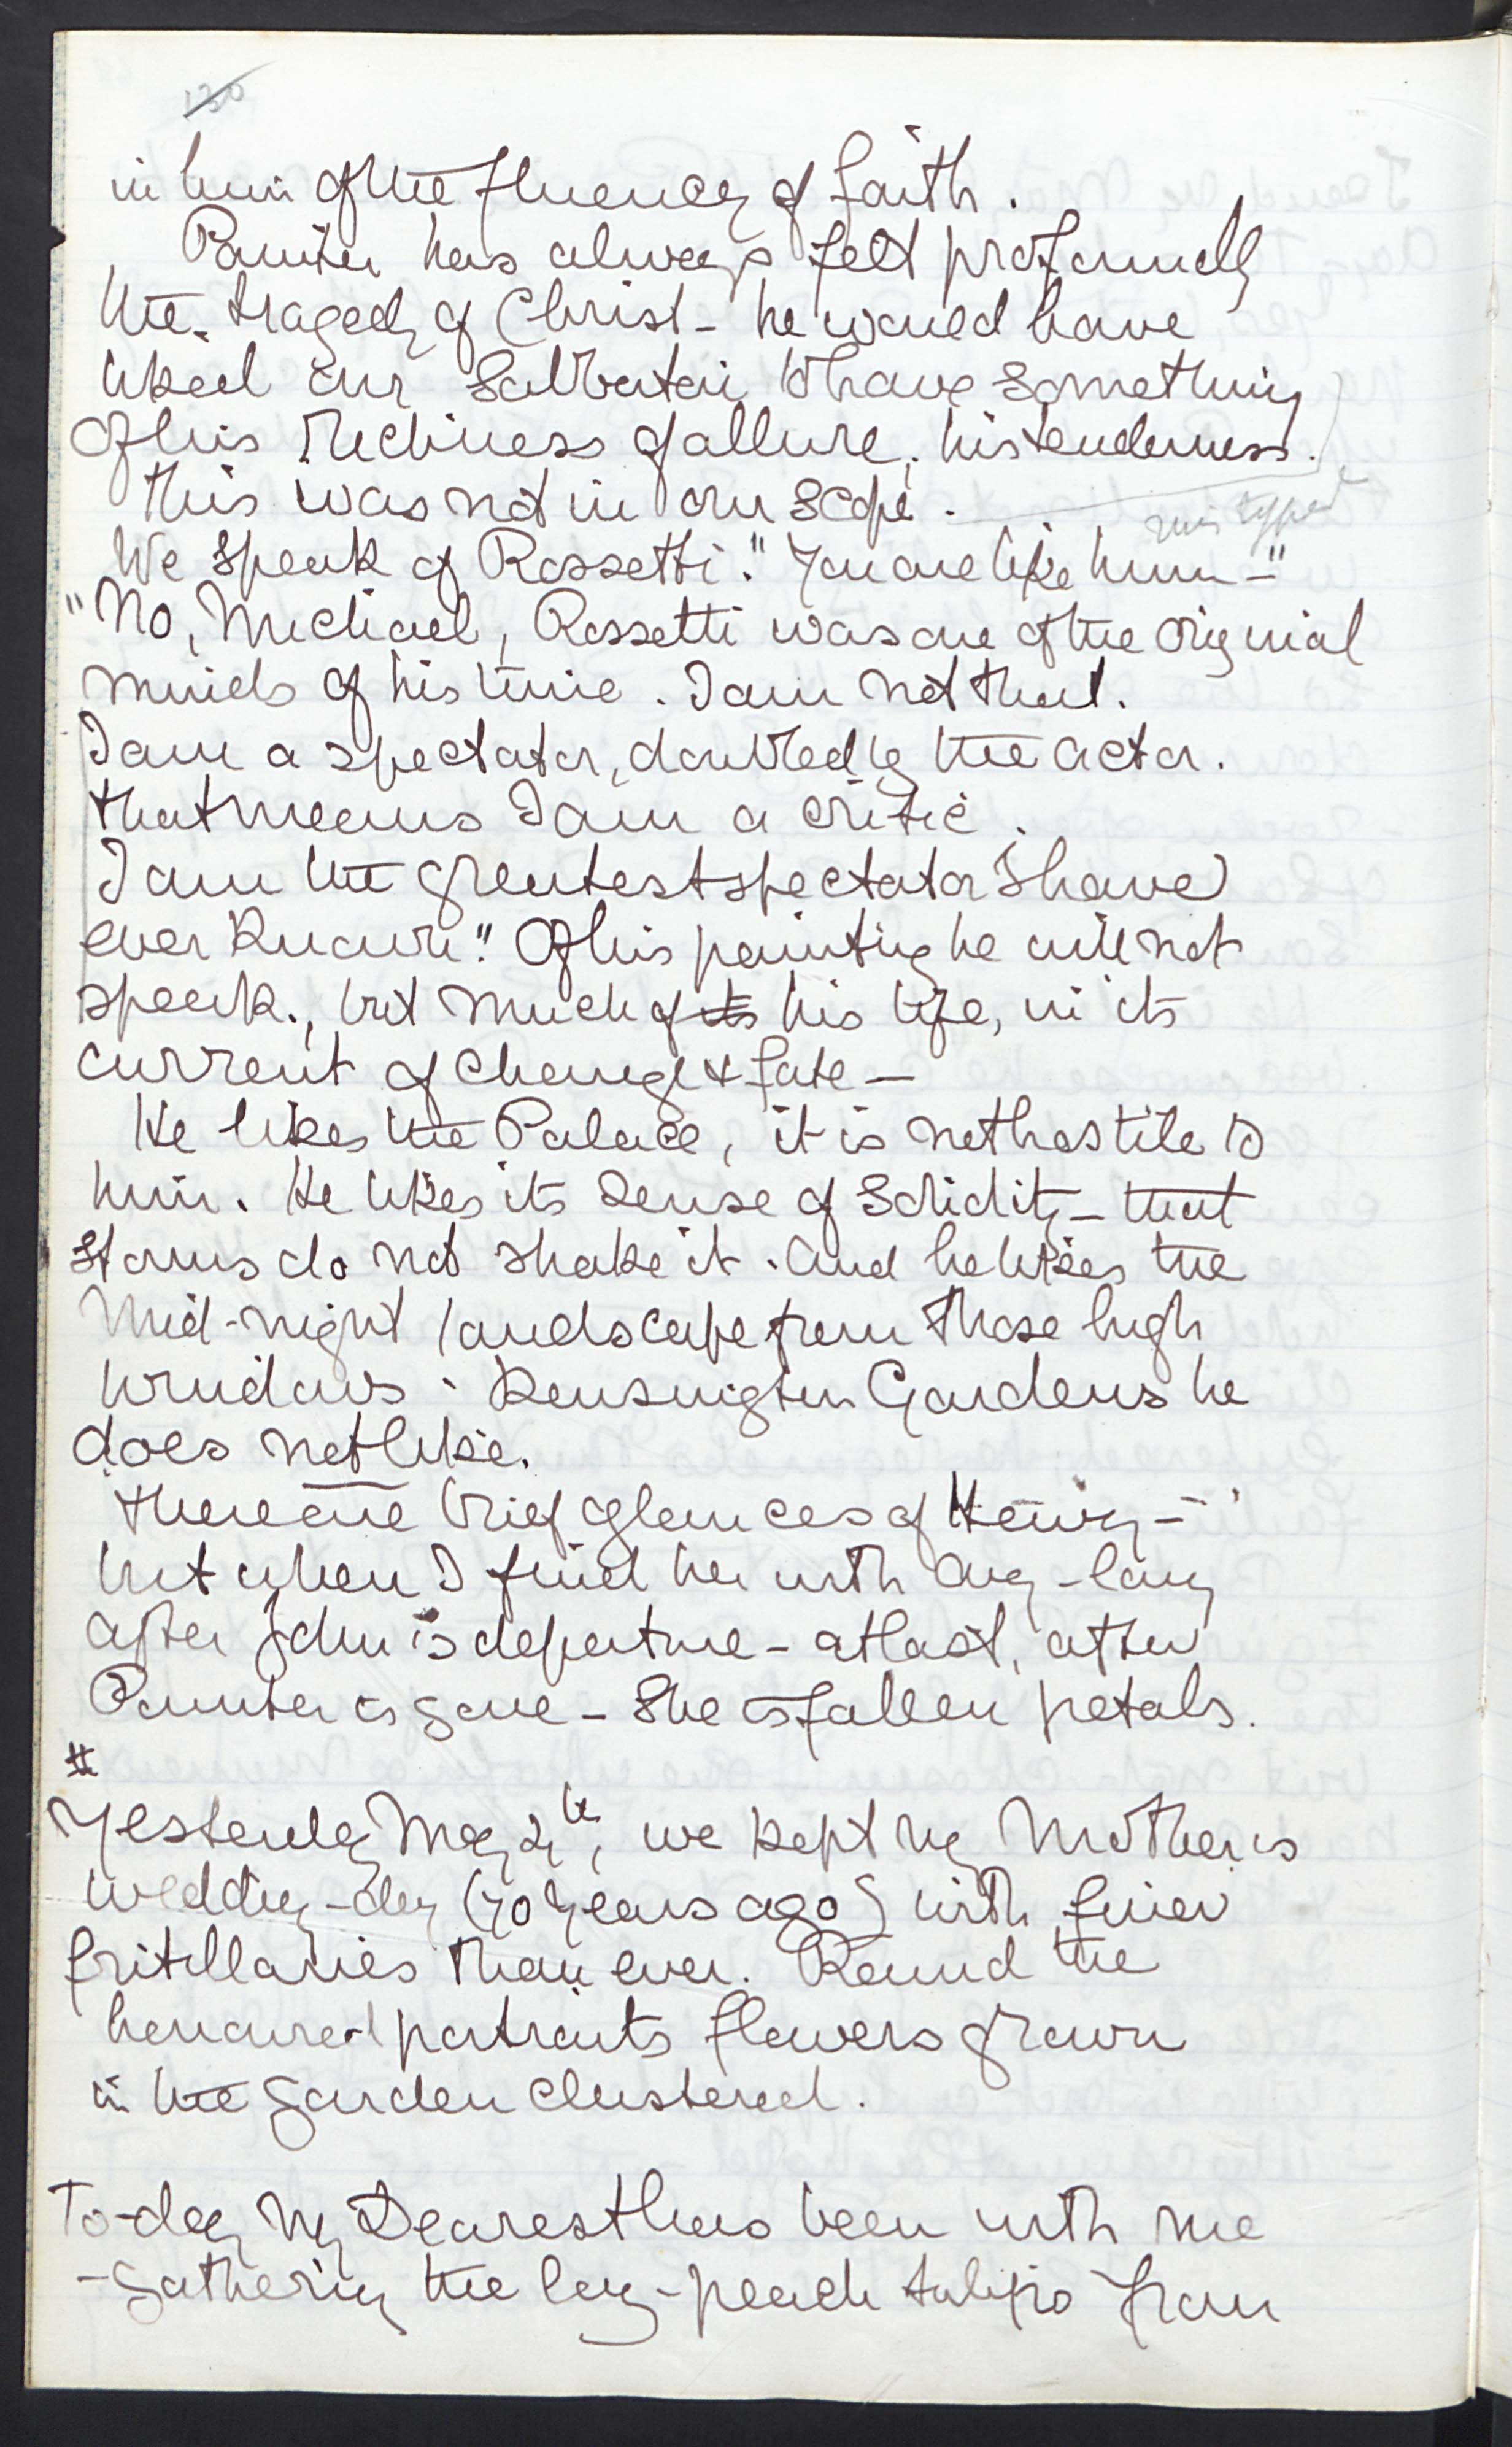 130
in him of the fluency of faith.
Painter has always felt profoundly
the tragedy of Christ – he would have
liked our Sabbatai to have something
of his richness of allure, his tenderness.
This was not in our scope.
typed
We speak of Rossetti. "You are like him –"
"No, Michael, Rossetti was one of the original
minds of his time. I am not that.
I am a spectator, doubled by the actor.
that means I am a critic.
I am the greatest spectator I have
ever known." Of his painting he will not
speak., but much of its his life, in its
current of change & fate –
He likes the Palace, it is not hostile to
him. He likes its sense of solidity – that
storms do not shake it. And he likes the
Mid-night landscape from those high
windows. Kensington Gardens he
does not like.
There are brief glances of Henry –
but when I find her with Amy – long
after John's departure – at last, after
Painter is gone – She is fallen petals.
#
Yesterday May 2, we kept my Mother's
wedding-day (70 years ago) with finer
fritillaries than ever. Round the
honoured portraits flowers grown
in the garden clustered.
To-day my Dearest has been with me
– gathering the long-peach tulips from